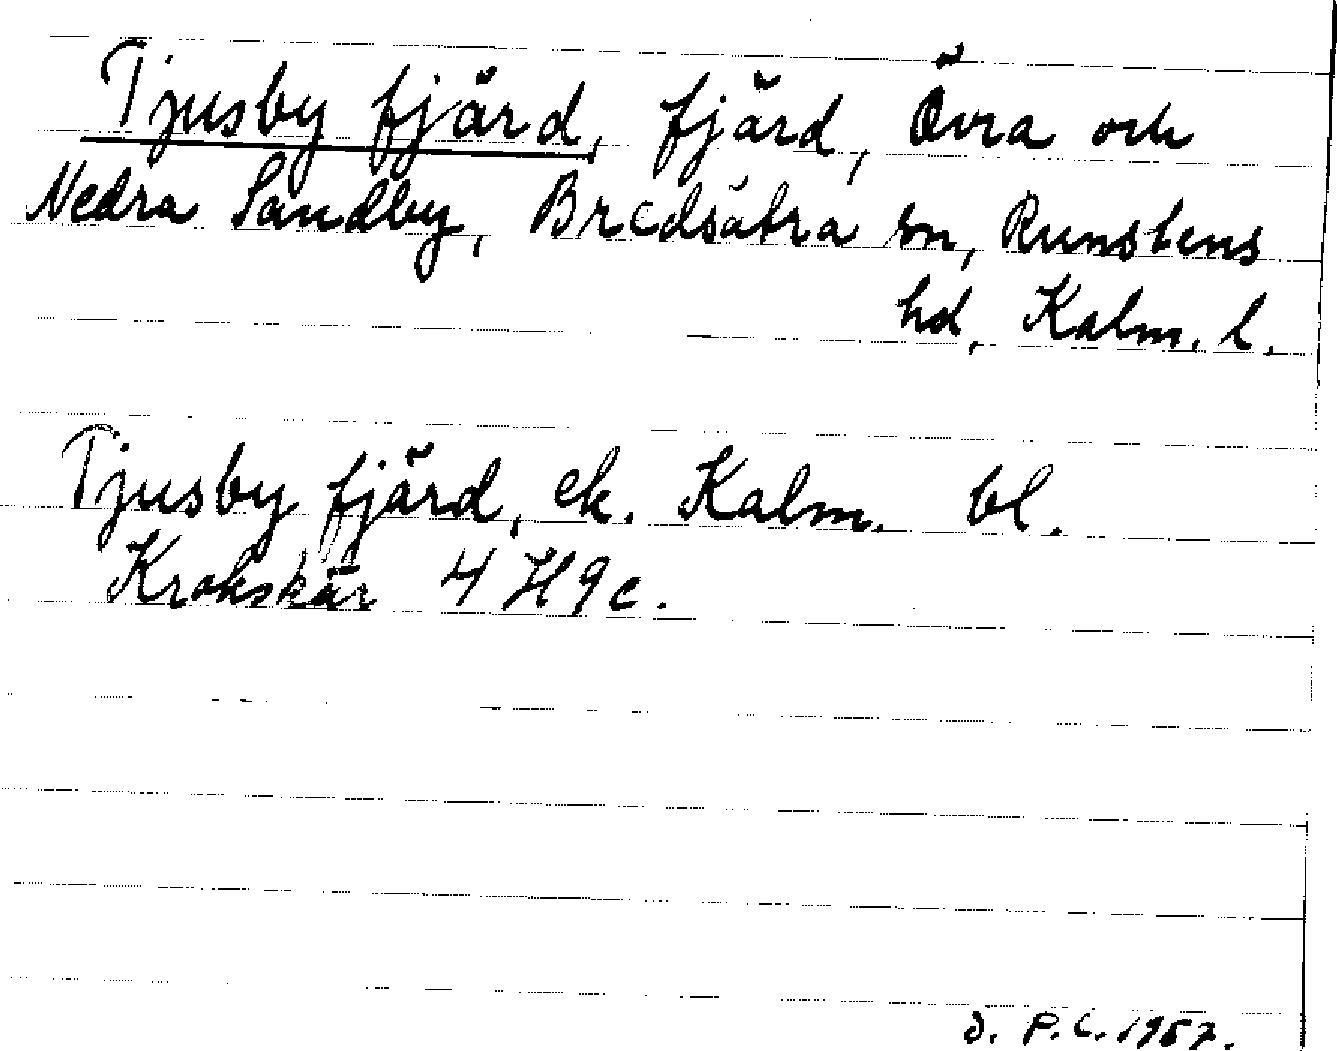 Tjusby fjärd, fjärd, Övra och
Nedra Sandby, Bredsätra sn, Runstens
hd, Kalm. l.
Tjusby fjärd, ek. Kalm. bl.
Krokskär 4 H 9 c.
D. P. C. 1957.